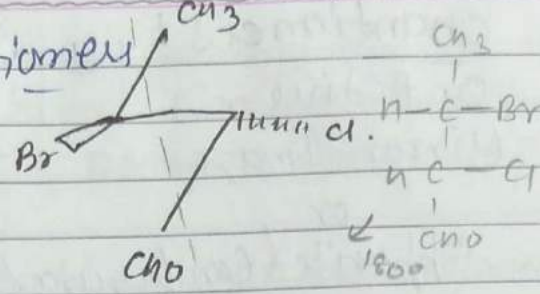 iomers
CH3
Br
Cl.
CHO
CH3
H-C-Br
H C-Cl
CHO
1800